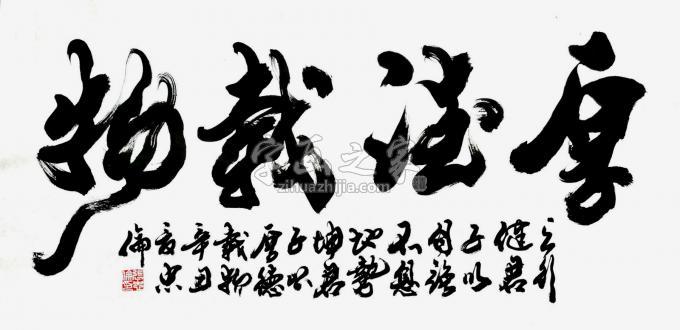 厚德載物
字画之家
zihuazhijia.com
天行
健君
子以
自強
不息
地勢
坤君
子以
厚德
載物
辛丑
倫